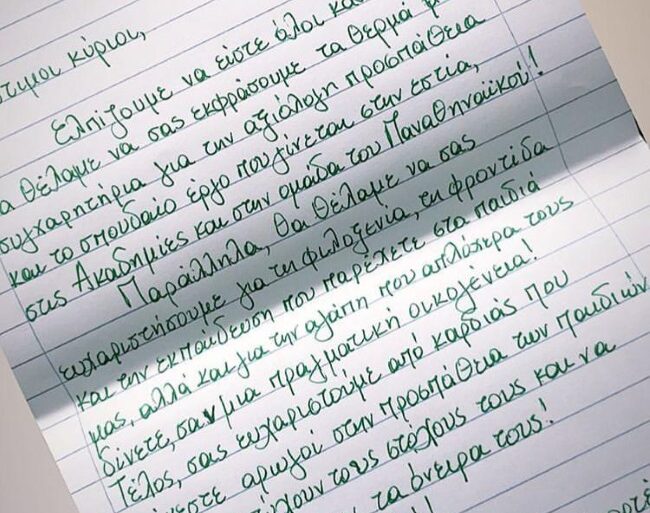 κύριοι,
Ελπίζουμε να είστε όλοι
θέλαμε να σας εκφράσουμε τα θερμά
συγχαρητήρια για την αξιόλογη προσπάθεια
και το σπουδαίο έργο που γίνεται στην εστία,
στις Ακαδημίες και στην ομάδα του Παναθηναϊκού!
Παράλληλα, θα θέλαμε να σας
ευχαριστήσουμε για τη φιλοξενία, τη φροντίδα
και την εκπαίδευση που παρέχετε στα παιδιά
μας, αλλά και για την αγάπη που απλόχερα τους
δίνετε, σαν μια πραγματική οικογένεια!
Τέλος, σας ευχαριστούμε από καρδιάς που
αρωγοί στην προσπάθεια των παιδιών
τους στόχους τους και να
τα όνειρα τους!